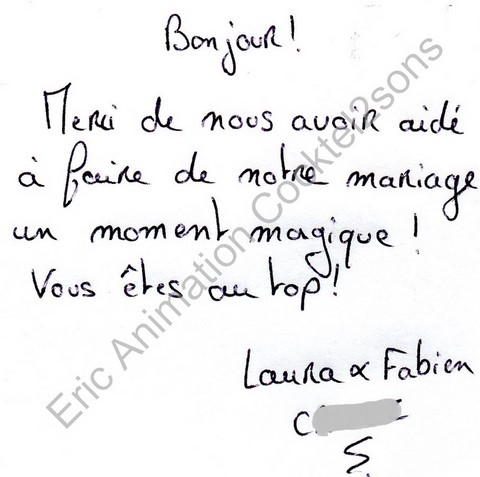 Bonjour!
Merci de nous avoir aidé
à faire de notre mariage
un moment magique !
Vous êtes au top!
Laura & Fabien
C
Eric Animation Cocktel2sons